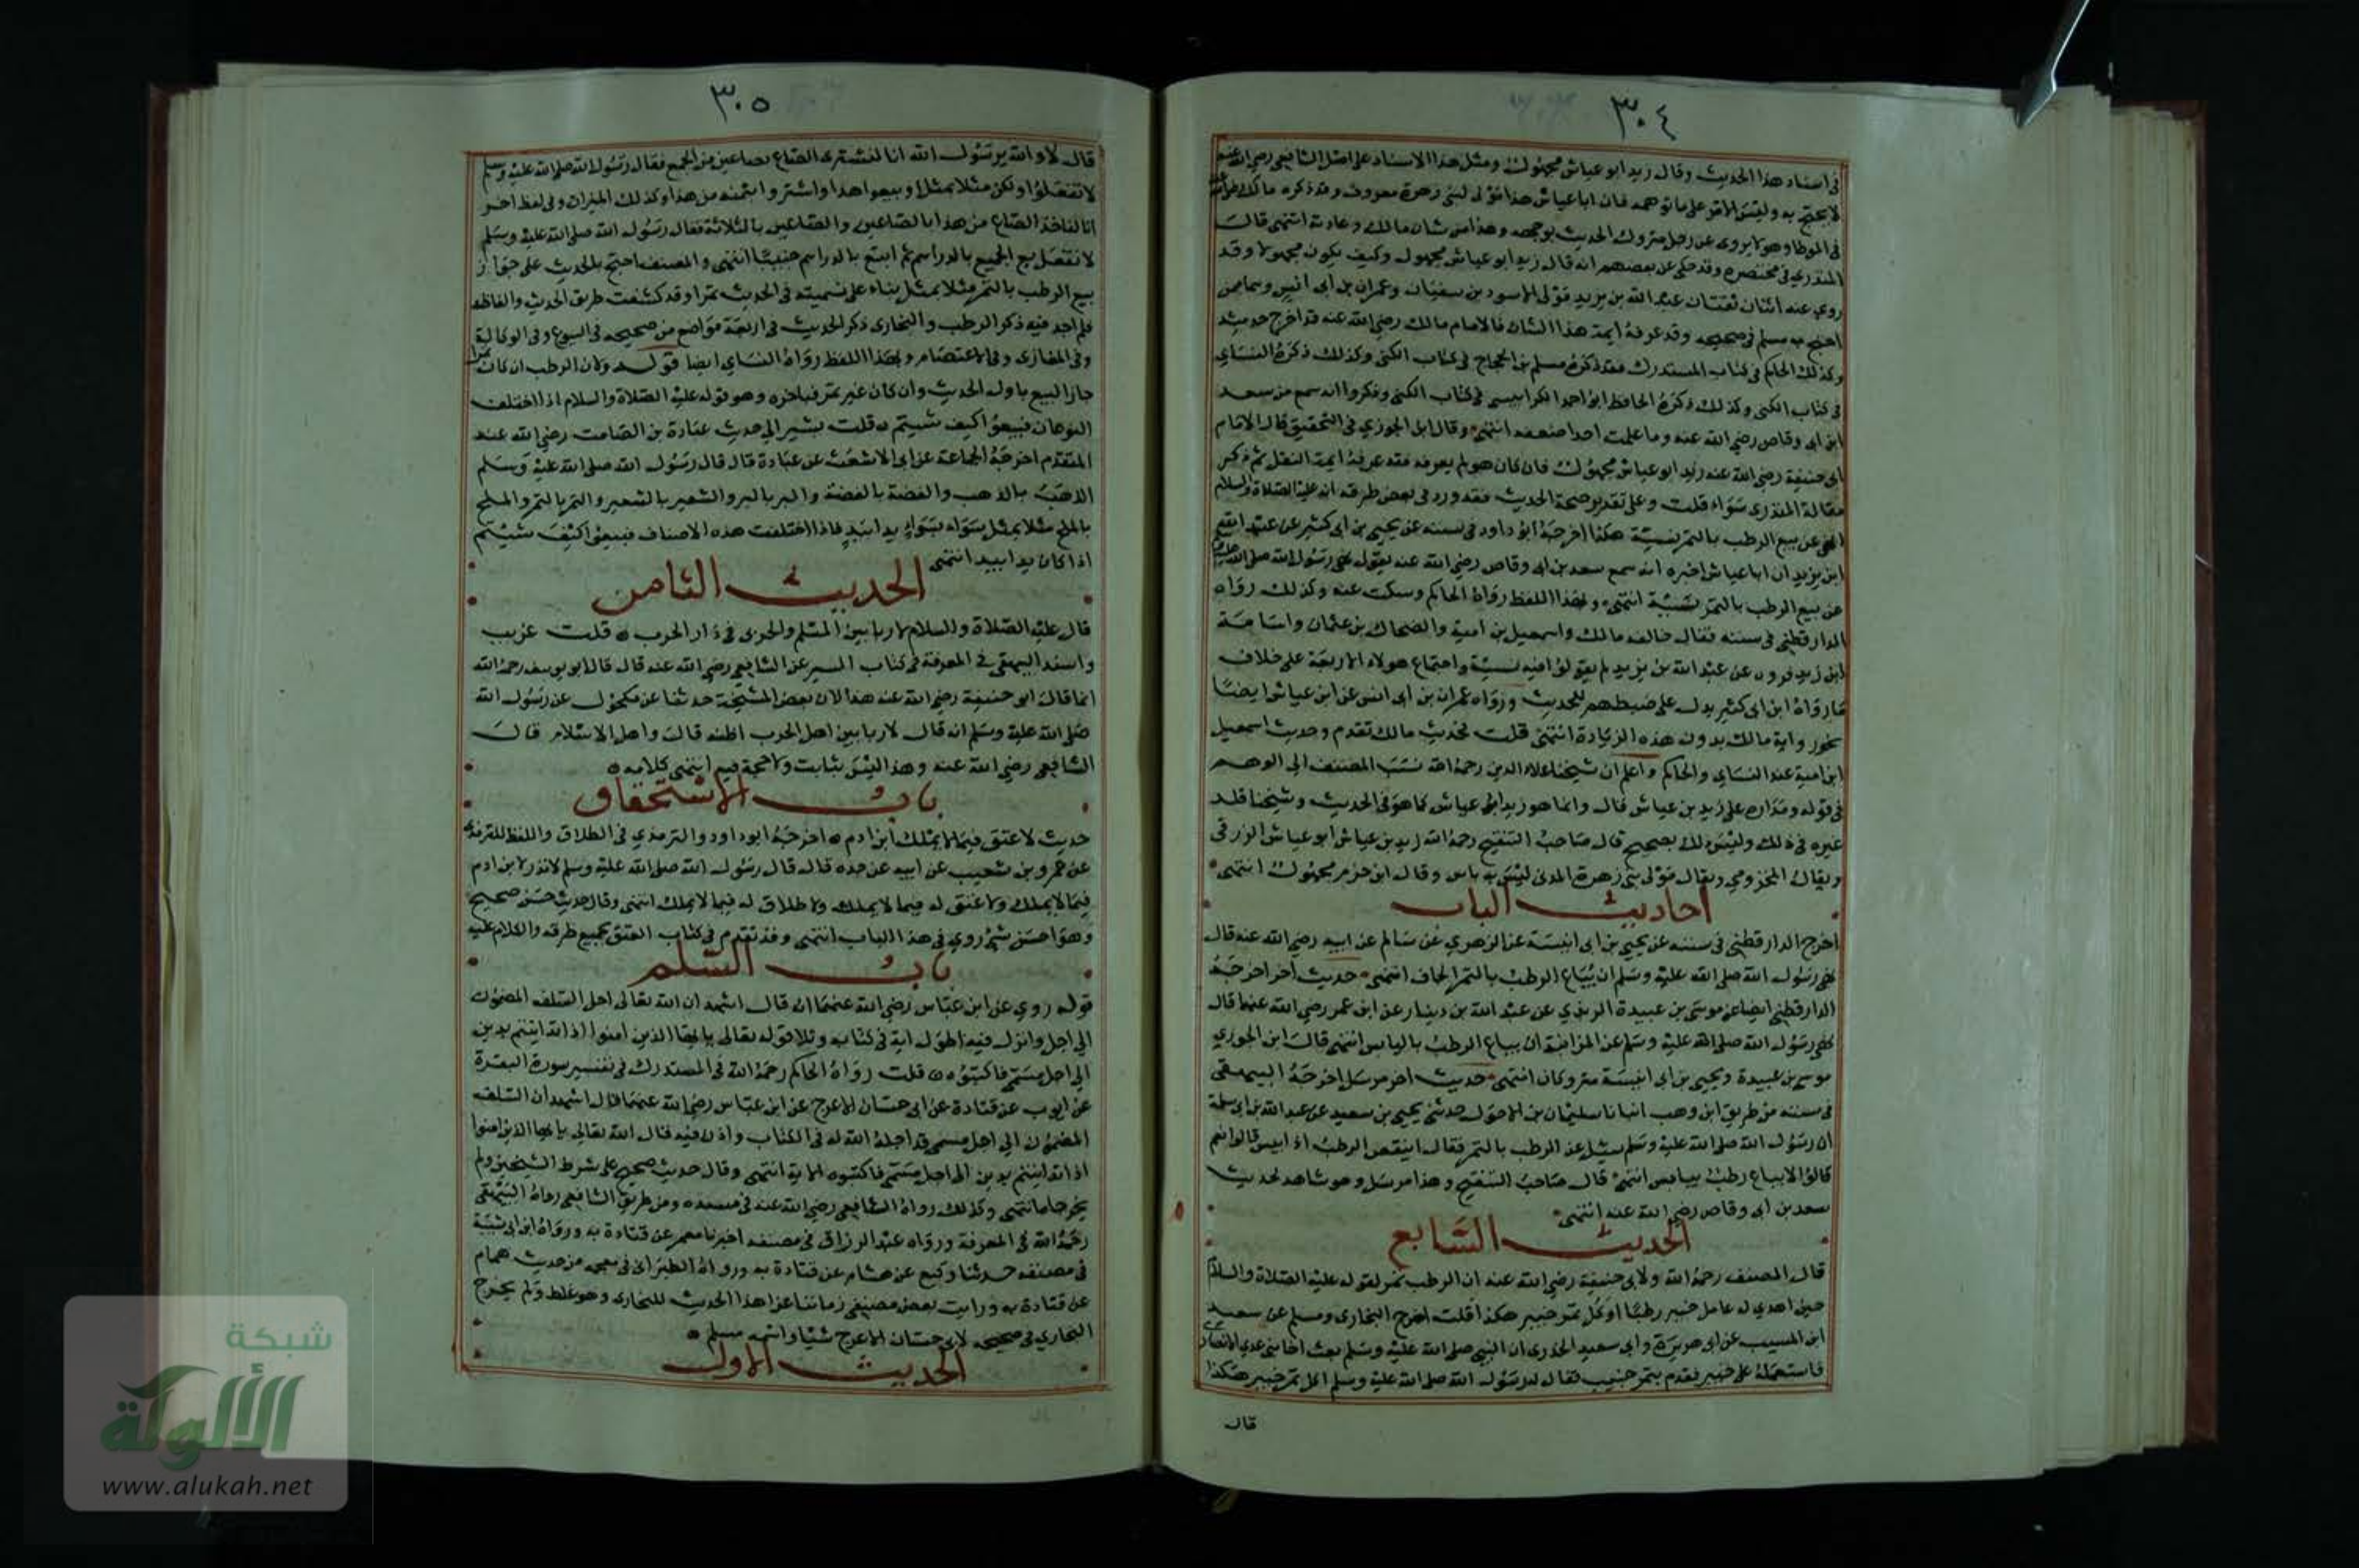 ٣٠٤
في اسناد هذا الحديث وقال زيد ابو عياش مجهول ومثل هذا الاسناد على اصل الشافعي رضي الله عنه
لا يحتج به وليس الامر على ما توهمه فان ابا عياش هذا مولى لبني زهرة معروف وقد ذكره مالك
في الموطا وهو لا يروى عن رجل متروك الحديث بوجهه وهذا من شان مالك وعادته انتهى قال
المنذري في مختصره وقد حكى عن بعضهم انه قال زيد ابو عياش مجهول وكيف يكون مجهولا وقد
روى عنه اثنان ثقتان عبد الله بن يزيد مولى الاسود بن سفيان وعمران بن ابى انيس وهما ممن
احتج به مسلم في صحيحه وقد عرفه ايمة هذا الشان فالامام مالك رضي الله عنه قد اخرج حديثه
وكذلك الحاكم في كتاب المستدرك وقد ذكره مسلم بن الحجاج في كتاب الكنى وكذلك ذكره النساي
في كتاب الكنى وكذلك ذكره الحافظ ابو احمد الكرابيسي في كتاب الكنى وذكروا انه سمع من سعد
ابن ابى وقاص رضي الله عنه وما علمت احدا ضعفه انتهى وقال ابن الجوزي في التحقيق قال الامام
ابى حنيفة رضي الله عنه زيد ابو عياش مجهول فان كان هو لم يعرفه فقد عرفه ايمة النقل ثم ذكر
مقالة المنذرى سواء قلت وعلى تقدير صحة الحديث فقد ورد فى بعض طرقه انه عليه الصلاة والسلام
نهى عن بيع الرطب بالتمر نسيئة هكذا اخرجه ابو داود في سننه عن يحيى بن ابى كثير عن عبد الله
ابن يزيد ان ابا عياش اخبره انه سمع سعد بن ابى وقاص رضي الله عنه يقول نهى رسول الله صلى الله عليه وسلم
عن بيع الرطب بالتمر نسيئة انتهى وبهذا اللفظ رواه الحاكم وسكت عنه وكذلك رواه
الدارقطني في سننه فقال خالفه مالك واسمعيل بن امية والضحاك بن عثمان واسامة
ابن زيد فرووه عن عبد الله بن يزيد لم يقولوا فيه نسيئة واجتماع هولاء الاربعة على خلاف
ما رواه ابن ابى كثير يدل على ضبطهم للحديث ورواه عمران بن ابى انس عن ابن عياش ايضا
نحو رواية مالك بدون هذه الزيادة انتهى قلت فحديث مالك تقدم وحديث اسمعيل
ابن امية عند النساي والحاكم واعلم ان شيخنا علاء الدين رحمه الله نسب المصنف الى الوهم
في قوله ومداره على زيد بن عياش قال وانما هو زيد ابى عياش كما هو في الحديث وشيخنا قلد
غيره في ذلك وليس ذلك بصحيح قال صاحب التنقيح رحمه الله زيد بن عياش ابو عياش الزرقي
ويقال المخزومي ويقال مولى بني زهرة المدنى ليس به باس وقال ابن حزم مجهول انتهى
احاديث الباب
اخرج الدارقطني في سننه عن يحيى بن ابى انيسة عن الزهري عن سالم عن ابيه رضي الله عنه قال
نهى رسول الله صلى الله عليه وسلم ان يباع الرطب بالتمر الجاف انتهى حديث اخر اخرجه
الدارقطني ايضا عن موسى بن عبيدة الربذي عن عبد الله بن دينار عن ابن عمر رضي الله عنهما قال
نهى رسول الله صلى الله عليه وسلم عن المزابنة ان يباع الرطب باليابس انتهى قال ابن الجوزي
موسى بن عبيدة ويحيى بن ابى انيسة متروكان انتهى حديث اخر مرسل اخرجه البيهقي
في سننه من طريق ابن وهب انبانا سليمان بن الاحول حدثني يحيى بن سعيد عن عبد الله بن ابى سلمة
ان رسول الله صلى الله عليه وسلم سيل عن الرطب بالتمر فقال اينقص الرطب اذا يبس قالوا نعم
قال لا يباع رطب بيابس انتهى قال صاحب التنقيح وهذا مرسل وهو شاهد لحديث
سعد بن ابى وقاص رضي الله عنه انتهى
الحديث السابع
قال المصنف رحمه الله ولابى حنيفة رضي الله عنه ان الرطب تمر لقوله عليه الصلاة والسلام
حين اهدي له عامل خيبر رطبا او كل تمر خيبر هكذا قلت اخرج البخارى ومسلم عن سعيد
ابن المسيب عن ابى هريرة وابى سعيد الخدرى ان النبي صلى الله عليه وسلم بعث اخا بنى عدي الانصارى
فاستعمله على خيبر فقدم بتمر جنيب فقال له رسول الله صلى الله عليه وسلم اكل تمر خيبر هكذا
قال
٣٠٥
قال لا والله يرسول الله انا لنشترى الصاع بصاعين من الجمع فقال رسول الله صلى الله عليه وسلم
لا تفعلوا ولكن مثلا بمثل او بيعوا هذا واشتروا بثمنه من هذا وكذلك الميزان وفى لفظ اخر
انا لناخذ الصاع من هذا بالصاعين والصاعين بالثلاثة فقال رسول الله صلى الله عليه وسلم
لا تفعل بع الجميع بالدراهم ثم ابتع بالدراهم جنيبا انتهى والمصنف احتج بالحديث على جواز
بيع الرطب بالتمر مثلا بمثل بناء على تسميته فى الحديث تمرا وقد كشفت طرق الحديث والفاظه
فلم اجد فيه ذكر الرطب والبخارى ذكر الحديث في اربعة مواضع من صحيحه في البيوع وفى الوكالة
وفى المغازى وفى الاعتصام وبهذا اللفظ رواه النساي ايضا قوله ولان الرطب ان كان تمرا
جاز البيع باول الحديث وان كان غير تمر فباخره وهو قوله عليه الصلاة والسلام اذا اختلف
النوعان فبيعوا كيف شيتم قلت يشير الى حديث عبادة بن الصامت رضي الله عنه
المتقدم اخرجه الجماعة عن ابى الاشعث عن عبادة قال قال رسول الله صلى الله عليه وسلم
الذهب بالذهب والفضة بالفضة والبر بالبر والشعير بالشعير والتمر بالتمر والملح
بالملح مثلا بمثل سواء بسواء يدا بيد فاذا اختلفت هذه الاصناف فبيعوا كيف شيتم
اذا كان يدا بيد انتهى
الحديث الثامن
قال عليه الصلاة والسلام لا ربا بين المسلم والحربى في دار الحرب قلت غريب
واسند البيهقي في المعرفة في كتاب السير عن الشافعي رضي الله عنه قال قال ابو يوسف رحمه الله
انما قال ابى حنيفة رضي الله عنه هذا لان بعض المشيخة حدثنا عن مكحول عن رسول الله
صلى الله عليه وسلم انه قال لا ربا بين اهل الحرب اظنه قال واهل الاسلام قال
الشافعي رضي الله عنه وهذا ليس بثابت ولا حجة فيه انتهى كلامه
باب الاستحقاق
حديث لا عتق فيما لا يملك ابن ادم اخرجه ابو داود والترمذي في الطلاق واللفظ للترمذى
عن عمرو بن شعيب عن ابيه عن جده قال قال رسول الله صلى الله عليه وسلم لا نذر لابن ادم
فيما لا يملك ولا عتق له فيما لا يملك ولا طلاق له فيما لا يملك انتهى وقال حديث حسن صحيح
وهو احسن شئ روي في هذا الباب انتهى وقد تقدم في كتاب العتق بجميع طرقه والكلام عليه
باب السلم
قوله روي عن ابن عباس رضي الله عنهما انه قال اشهد ان الله تعالى احل السلف المضمون
الى اجل وانزل فيه اطول اية في كتابه وتلا قوله تعالى يا ايها الذين امنوا اذا تداينتم بدين
الى اجل مسمى فاكتبوه قلت رواه الحاكم رحمه الله في المستدرك في تفسير سورة البقرة
عن ايوب عن قتادة عن ابى حسان الاعرج عن ابن عباس رضي الله عنهما قال اشهد ان السلف
المضمون الى اجل مسمى قد احله الله له في الكتاب واذن فيه قال الله تعالى يا ايها الذين امنوا
اذا تداينتم بدين الى اجل مسمى فاكتبوه الاية انتهى وقال حديث صحيح على شرط الشيخين ولم
يخرجاه انتهى وكذلك رواه الشافعي رضي الله عنه في مسنده ومن طريق الشافعي رواه البيهقي
رحمه الله في المعرفة ورواه عبد الرزاق في مصنفه اخبرنا معمر عن قتادة به ورواه ابن ابى شيبة
في مصنفه حدثنا وكيع عن هشام عن قتادة به ورواه الطبرانى في معجمه من حديث همام
عن قتادة به ورايت بعض مصنفى زماننا عزا هذا الحديث للبخارى وهو غلط ولم يخرج
البخاري في صحيحه لابى حسان الاعرج شيا واسمه مسلم
الحديث الاول
شبكة
الألوكة
www.alukah.net